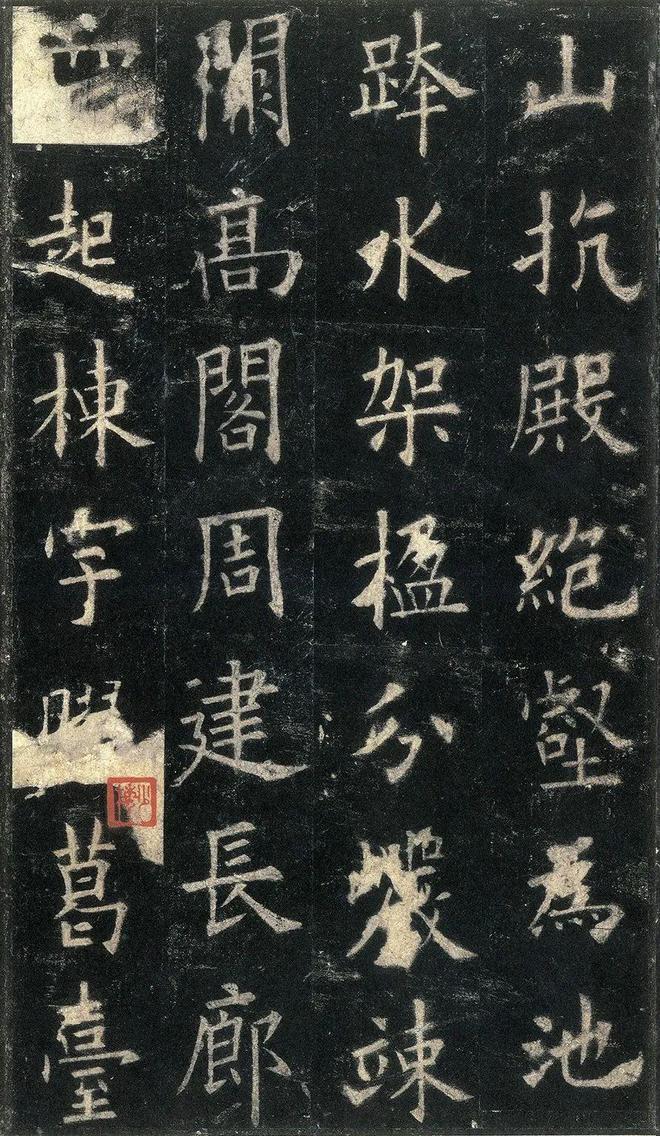 山抗殿絕壑為池
跨水架楹分巖竦
闕高閣周建長廊
四起棟宇膠葛臺